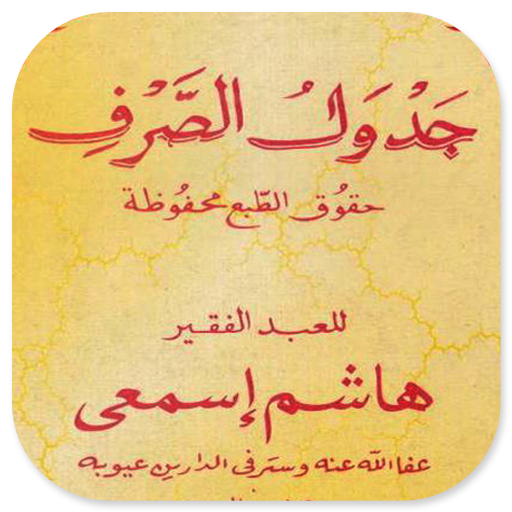 جَدْوَلُ الصَّرْفِ
حقوُق الطّبع محفوُظة
للعبد الفقير
هاشم إسمعى
عفا الله عنه وستر فى الدارين عيوبه